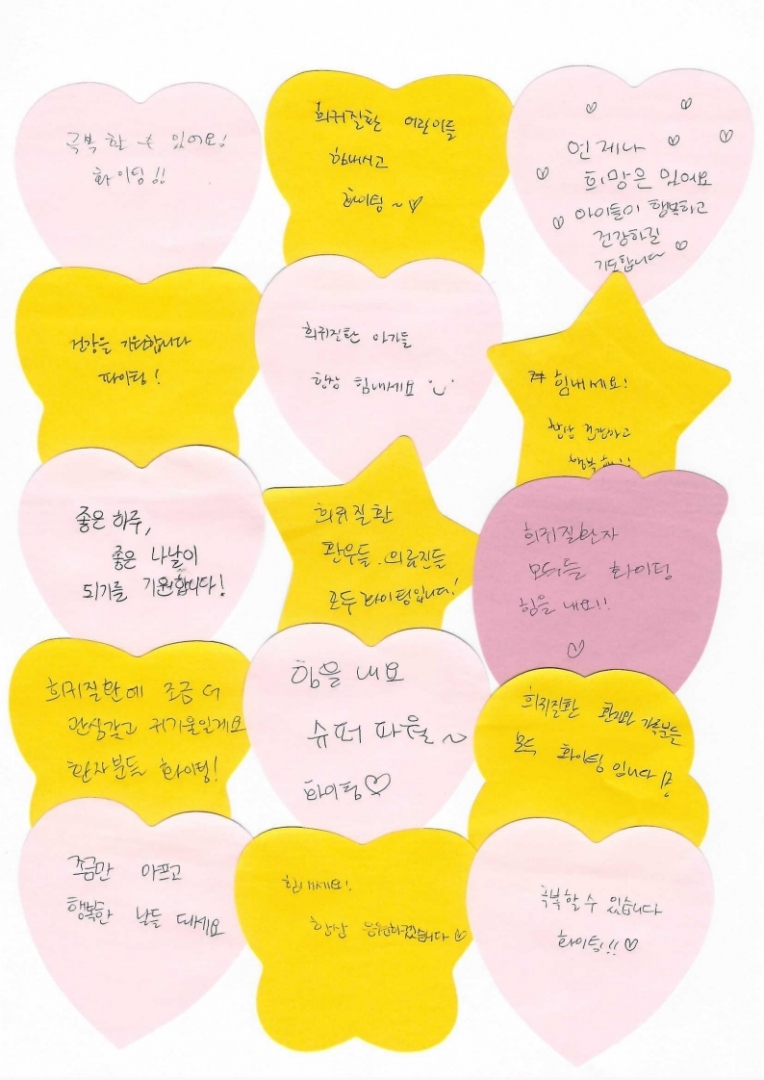 극복할 수 있어요!
화이팅!!
희귀질환 어린이들
힘내시고
화이팅~♡
언제나
희망은 있어요
아이들이 행복하고
건강하길
기도합니다
건강을 기원합니다
파이팅!
희귀질환 아가들
항상 힘내세요
힘내세요!
항상 건강하고
좋은 하루,
좋은 나날이
되기를 기원합니다!
희귀질환
환우들, 의료진들
모두 화이팅입니다!
희귀질환자
모두들 화이팅
힘을 내요!!
♡
희귀질환에 조금 더
관심갖고 귀기울일게요
환자분들 화이팅!
힘을 내요
슈퍼 파월~
화이팅♡
희귀질환 환자와 가족분들
모두 화이팅 입니다
조금만 아프고
행복한 날들 되세요
힘내세요!
항상 응원하겠습니다♡
극복할 수 있습니다
화이팅!!♡